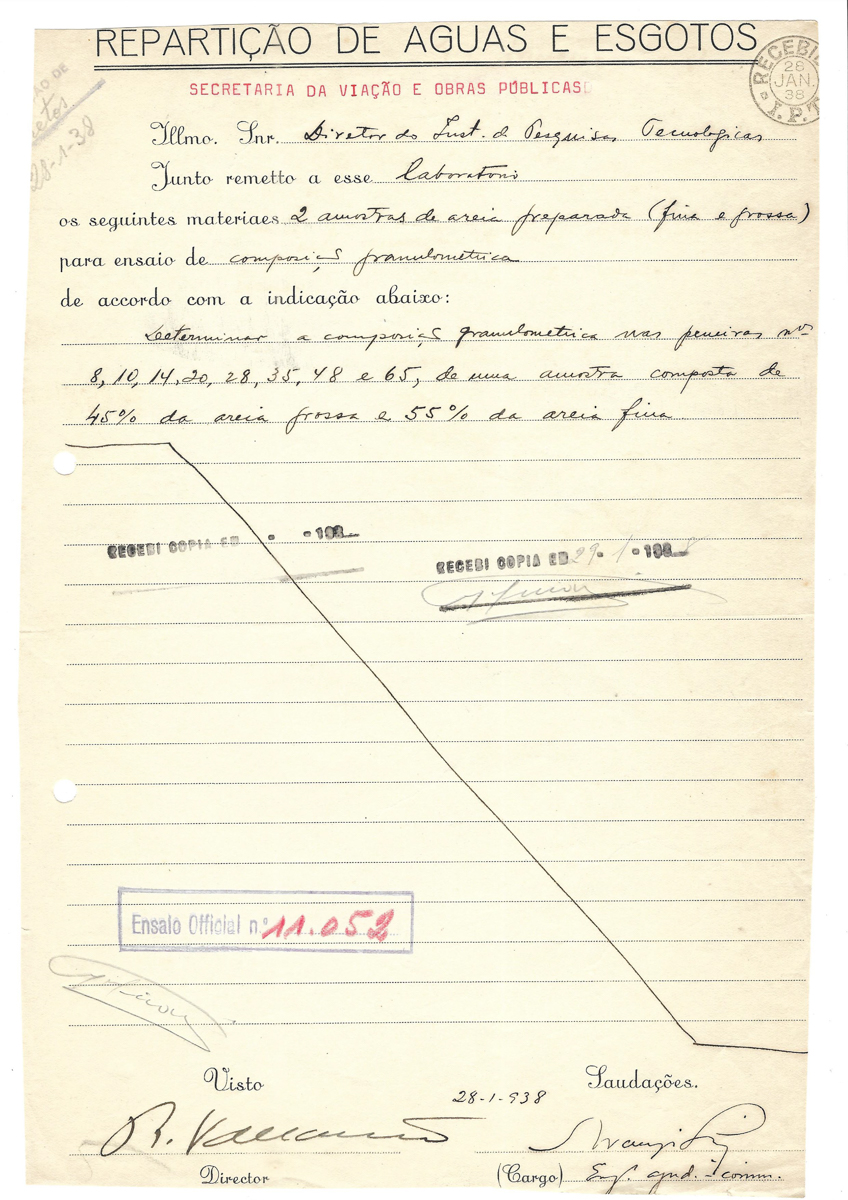 REPARTIÇÃO DE AGUAS E ESGOTOS
SECRETARIA DA VIAÇÃO E OBRAS PÚBLICAS
RECEBIDO
28
JAN.
38
I.P.T.
28-1-38
Illmo. Snr. Diretor do Inst. de Pesquisas Tecnologicas
Junto remetto a esse Laboratorio
os seguintes materiaes 2 amostras de areia preparada (fina e grossa)
para ensaio de composiç granulometrica
de accordo com a indicação abaixo:
Determinar a composiç granulometrica nas peneiras nos
8, 10, 14, 20, 28, 35, 48 e 65, de uma amostra composta de
45% da areia grossa e 55% da areia fina
RECEBI COPIA EM - - 193
RECEBI COPIA EM 29-1-1938
Ensaio Official n.º 11.052
Visto
Saudações.
28-1-938
Director
(Cargo) Eng.